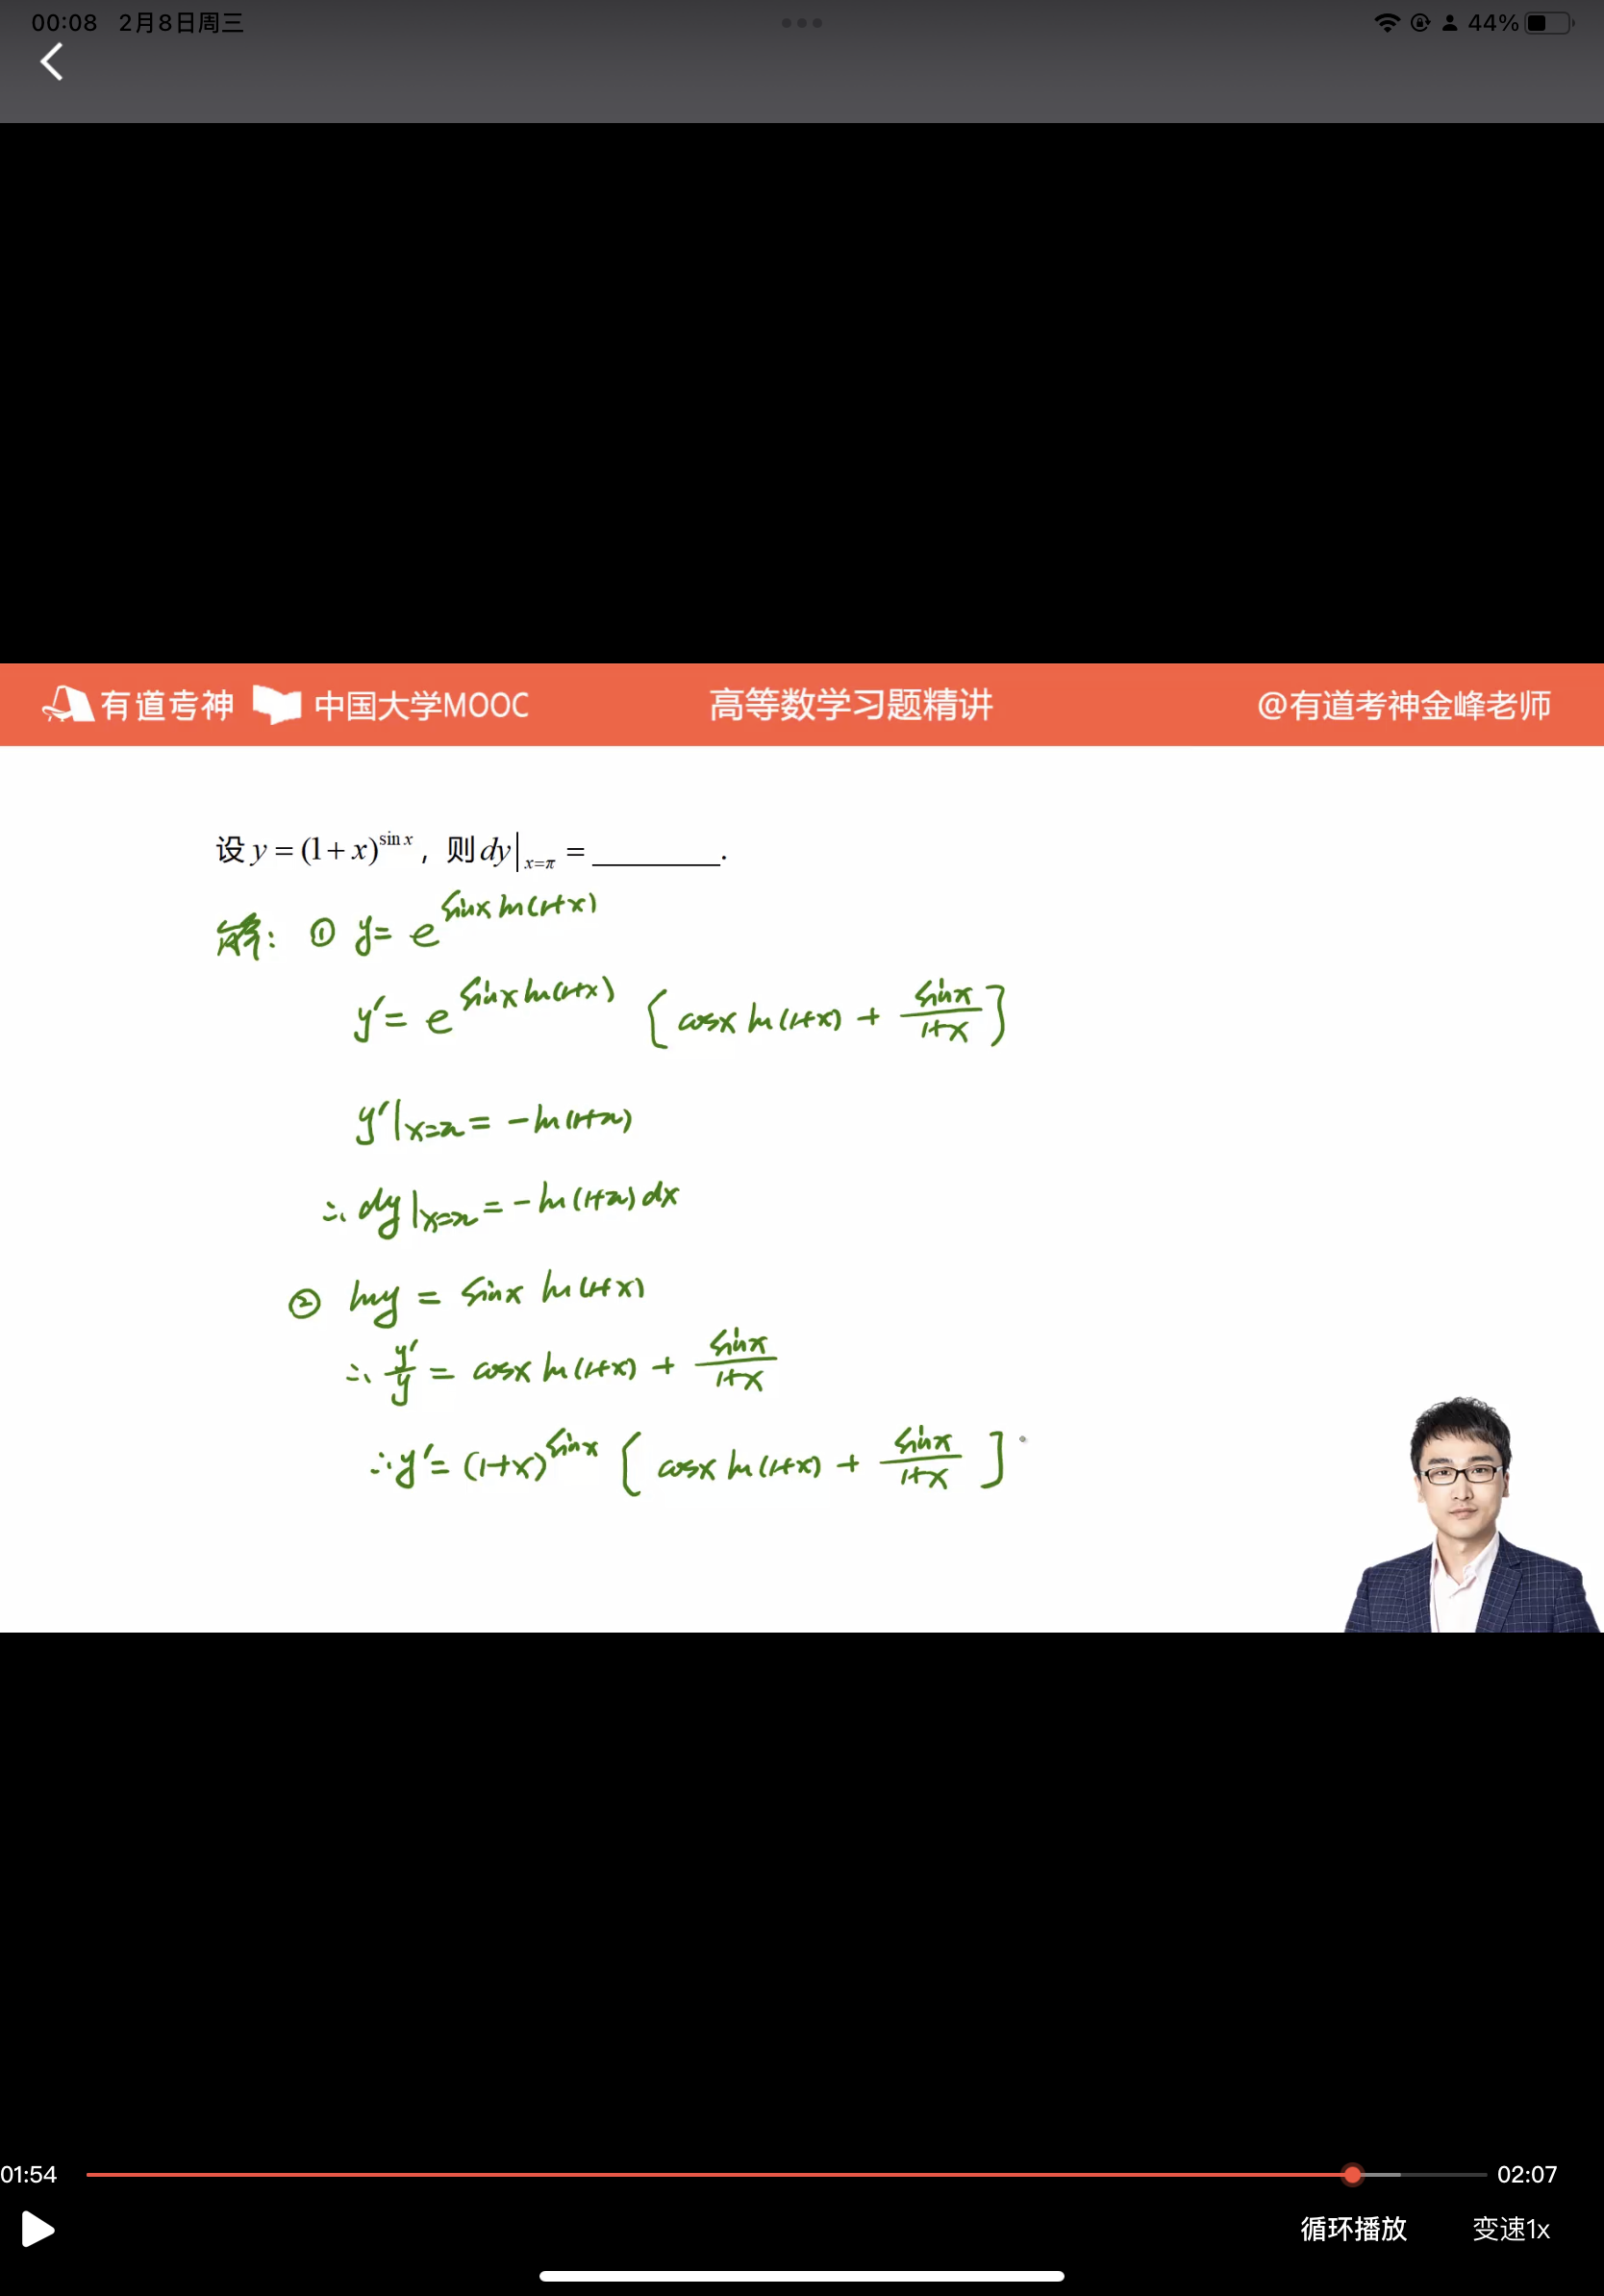 00:08 2月8日周三 44%
有道考神 中国大学MOOC 高等数学习题精讲 @有道考神金峰老师
设 y = (1+x)^{sin x}, 则 dy|_{x=π} = ________.
解: ① y = e^{sinx ln(1+x)}
y' = e^{sinx ln(1+x)} [cosx ln(1+x) + \frac{sinx}{1+x}]
y'|_{x=π} = -ln(1+π)
∴ dy|_{x=π} = -ln(1+π) dx
② lny = sinx ln(1+x)
∴ \frac{y'}{y} = cosx ln(1+x) + \frac{sinx}{1+x}
∴ y' = (1+x)^{sinx} [cosx ln(1+x) + \frac{sinx}{1+x}]
01:54 02:07
循环播放 变速1x